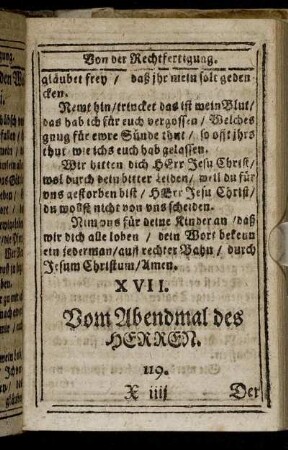 Von der Rechtfertigung.
gläubet frey / daß jhr mein solt geden
cken.
Nemt hin/trincket das ist mein Blut/
das hab ich für euch vergossen / Welches
gnug für ewre Sünde thut / so offt jhrs
thut / wie ichs euch hab gelassen.
Wir bitten dich HErr Jesu Christ/
wol durch dein bitter Leiden/ weil du für
uns gestorben bist / HErr Jesu Christ/
du wollst nicht von uns scheiden.
Nim uns für deine Kinder an / daß
wir dich alle loben / dein Wort bekenn
ein jederman/auff rechter Bahn / durch
Jesum Christum/Amen.
XVII.
Vom Abendmal des
HERREN.
119.
X iiij Der